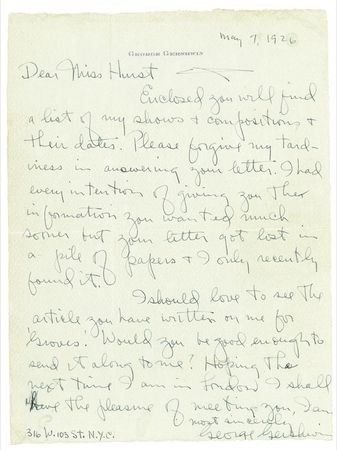 May 7, 1926
GEORGE GERSHWIN
Dear Miss Hurst
Enclosed you will find
a list of my shows + compositions +
their dates. Please forgive my tard-
iness in answering your letter. I had
every intention of giving you the
information you wanted much
sooner but your letter got lost in
a pile of papers + I only recently
found it.
I should love to see the
article you have written on me for
Groves. Would you be good enough to
send it along to me? Hoping the
next time I am in London I shall
have the pleasure of meeting you, I am
most sincerely
George Gershwin
316 W. 103 St. N.Y.C.